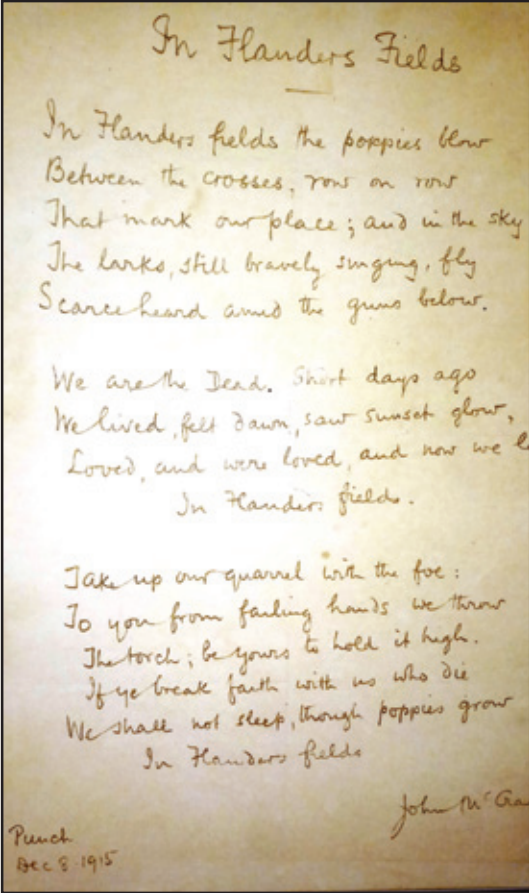 In Flanders Fields
In Flanders fields the poppies blow
Between the crosses, row on row
That mark our place; and in the sky
The larks, still bravely singing, fly
Scarce heard amid the guns below.
We are the Dead. Short days ago
We lived, felt dawn, saw sunset glow,
Loved, and were loved, and now we
In Flanders fields.
Take up our quarrel with the foe:
To you from failing hands we throw
The torch; be yours to hold it high.
If ye break faith with us who die
We shall not sleep, though poppies grow
In Flanders fields
John McCra
Punch
Dec 8. 1915